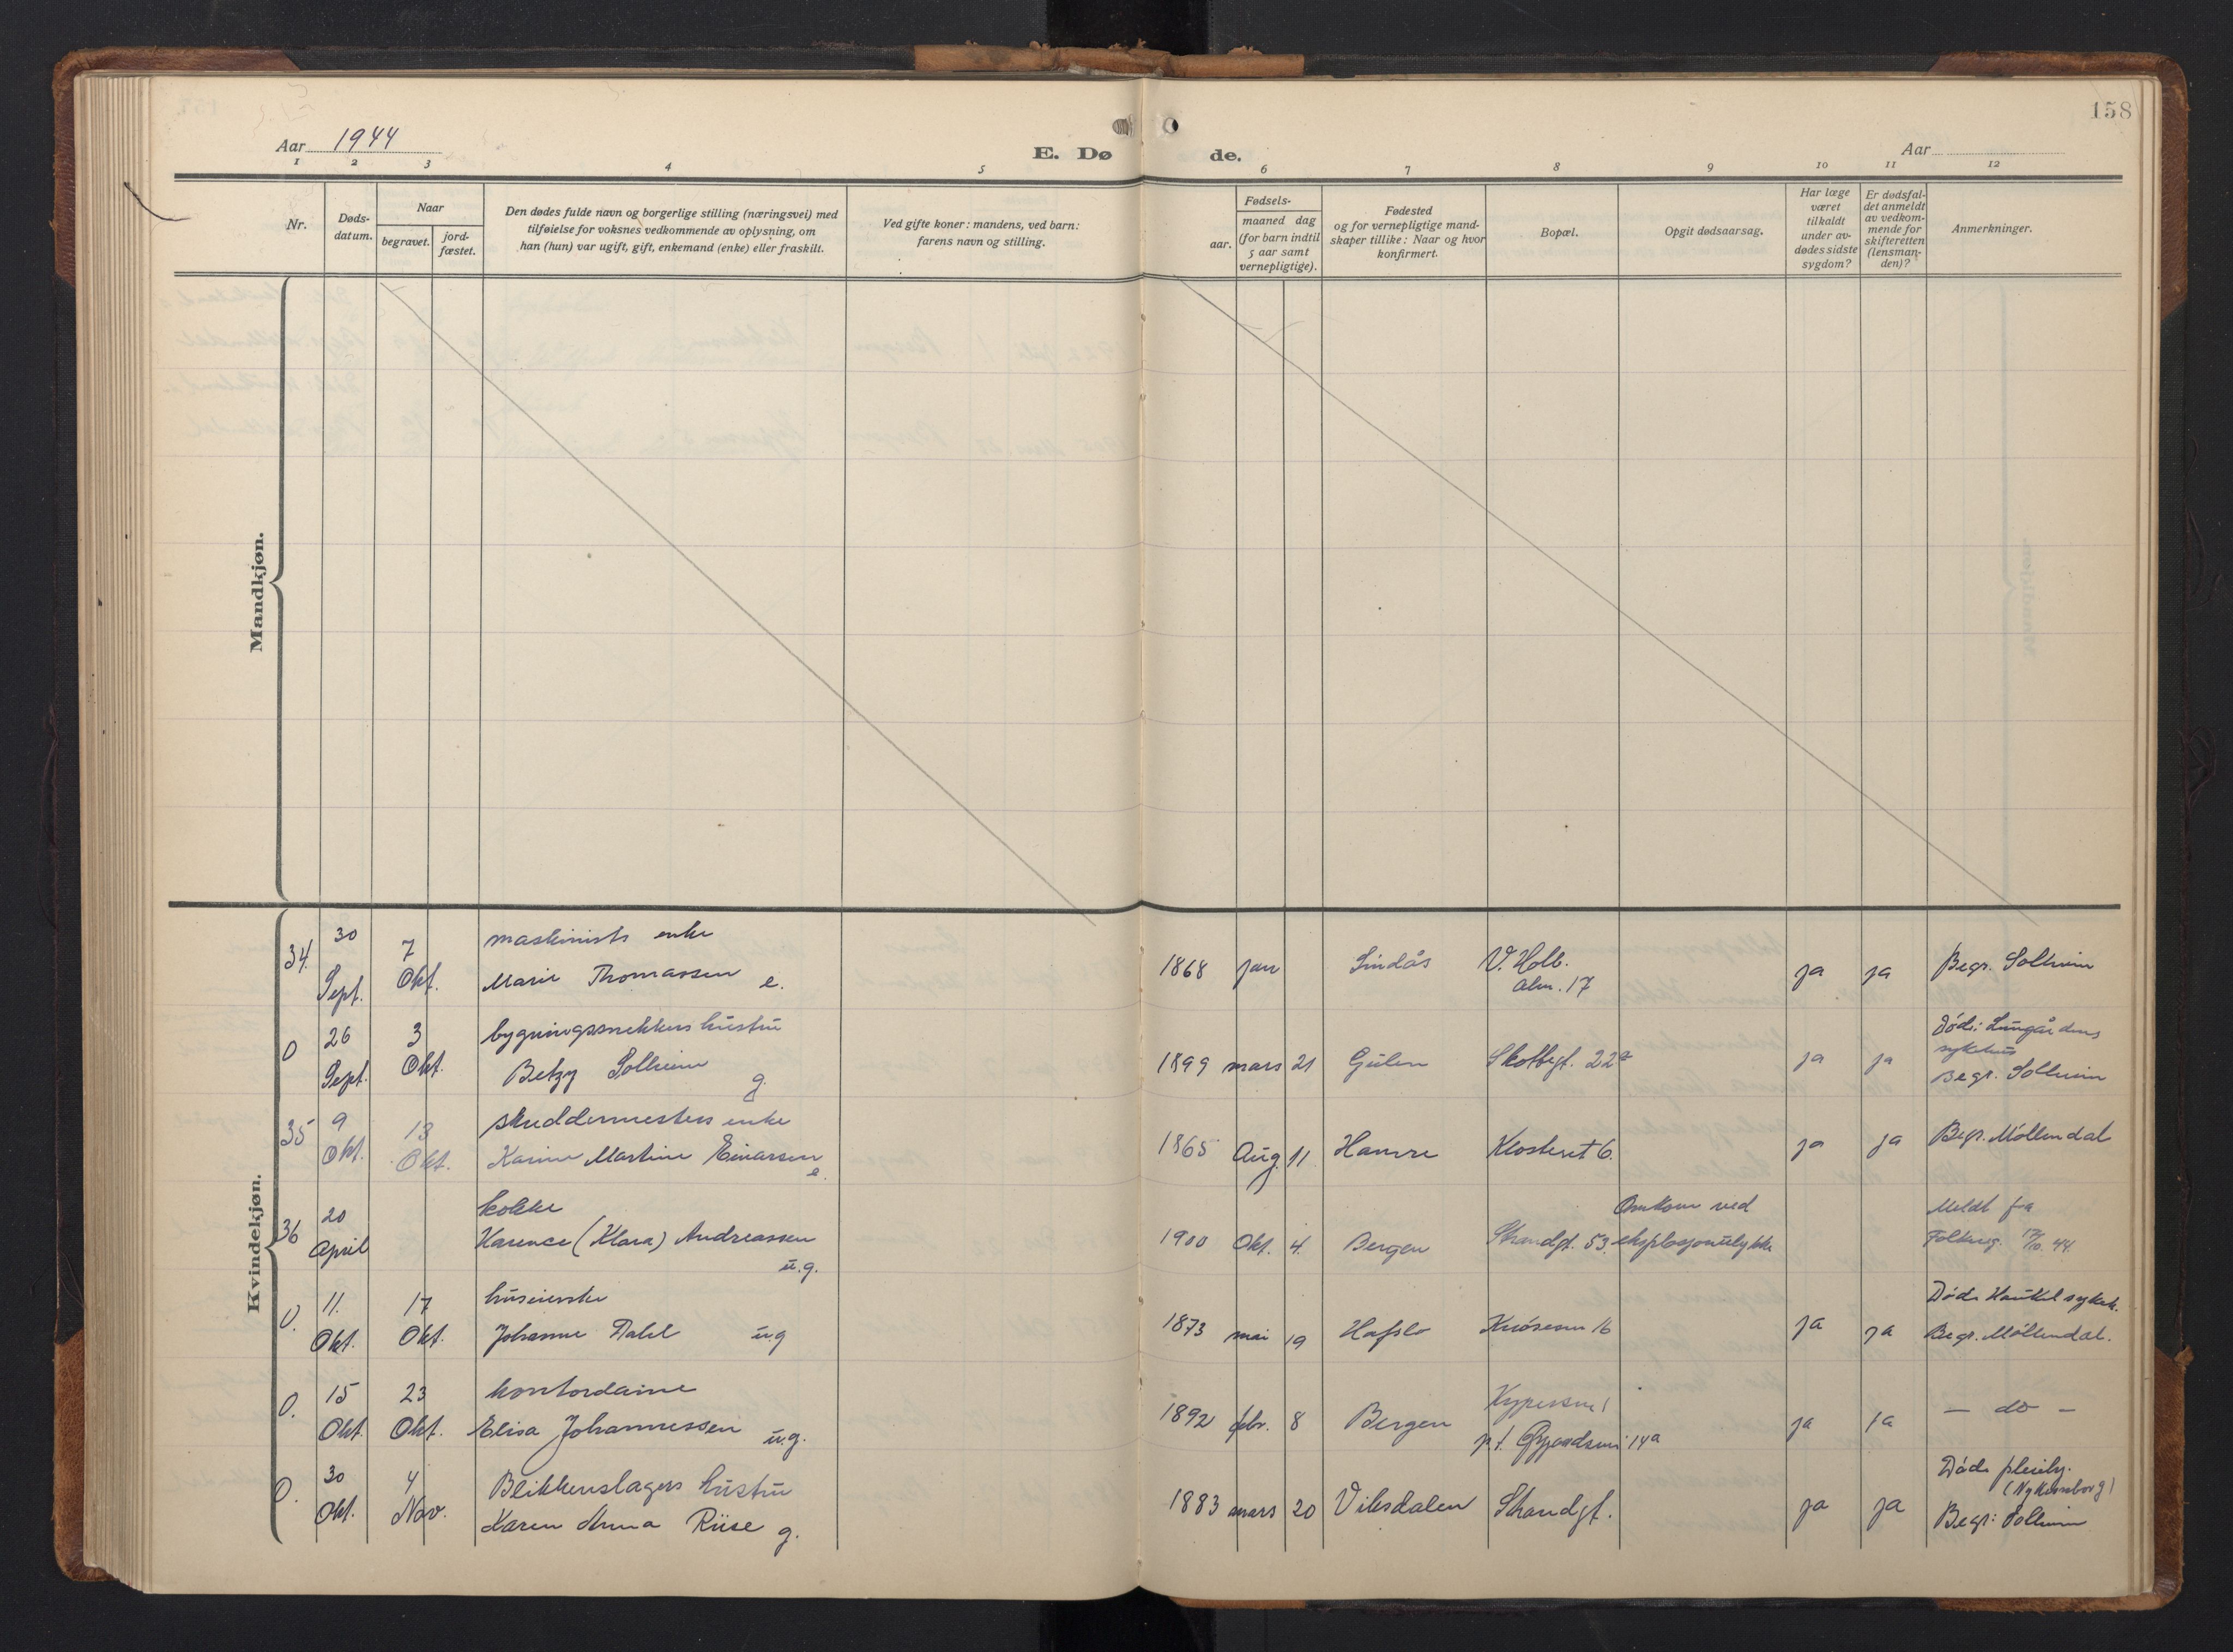 158
Aar 1944
E. Døde.
Aar
1 2 3 4 5 6 7 8 9 10 11 12
Nr.
Døds-
datum.
Naar
begravet.
jord-
fæstet.
Den dødes fulde navn og borgerlige stilling (næringsvei) med
tilføielse for voksnes vedkommende av oplysning, om
han (hun) var ugift, gift, enkemand (enke) eller fraskilt.
Ved gifte koner: mandens, ved barn:
farens navn og stilling.
Fødsels-
aar.
maaned dag
(for barn indtil
5 aar samt
vernepligtige).
Fødested
og for vernepligtige mand-
skaper tillike: Naar og hvor
konfirmert.
Bopæl.
Opgit dødsaarsag.
Har læge
været
tilkaldt
under av-
dødes sidste
sygdom?
Er dødsfal-
det anmeldt
av vedkom-
mende for
skifteretten
(lensman-
den)?
Anmerkninger.
Mandkjøn.
Kvindekjøn.
34. 30 Sept. 7 Okt. maskinists enke
Marie Thomassen e.
1868 jan Lindås V. Holb. Alm. 17 ja ja Begr. Solheim
0 26 Sept. 3 Okt. bygningssnekkers hustru
Betzy Solheim g.
1899 mars 21 Gulen Skottegt. 22a ja ja Död: Lungårdens
sykehus
Begr. Solheim
35 9 Okt. 13 Okt. skreddermesters enke
Karine Martine Einarsen e.
1865 Aug. 11 Hamre Klosteret 6. ja ja Begr. Möllendal
36 20 April kokke
Harence (Klara) Andreassen u.g.
1900 Okt. 4. Bergen Strandgt. 53. Omkom ved
eksplosjonsulykke
Meldt fra
Folkereg. 17/10. 44.
0. 11. Okt. 17 Okt. huseierske
Johanne Dahl u.g
1873 mai 19 Hafslo Knösesm 16 ja ja Döde Haukel sykeh.
Begr. Möllendal.
0. 15 Okt. 23 Okt. kontordame
Elisa Johannessen u.g.
1892 febr. 8 Bergen Kypersm 1
14a ja ja — do —
0. 30 Okt. 4 Nov. Blikkenslagers hustru
Karen Anna Riise g.
1883 mars 20 Viksdalen Strandgt. ja ja Döde pleieh.
(Nykronborg)
Begr: Solheim